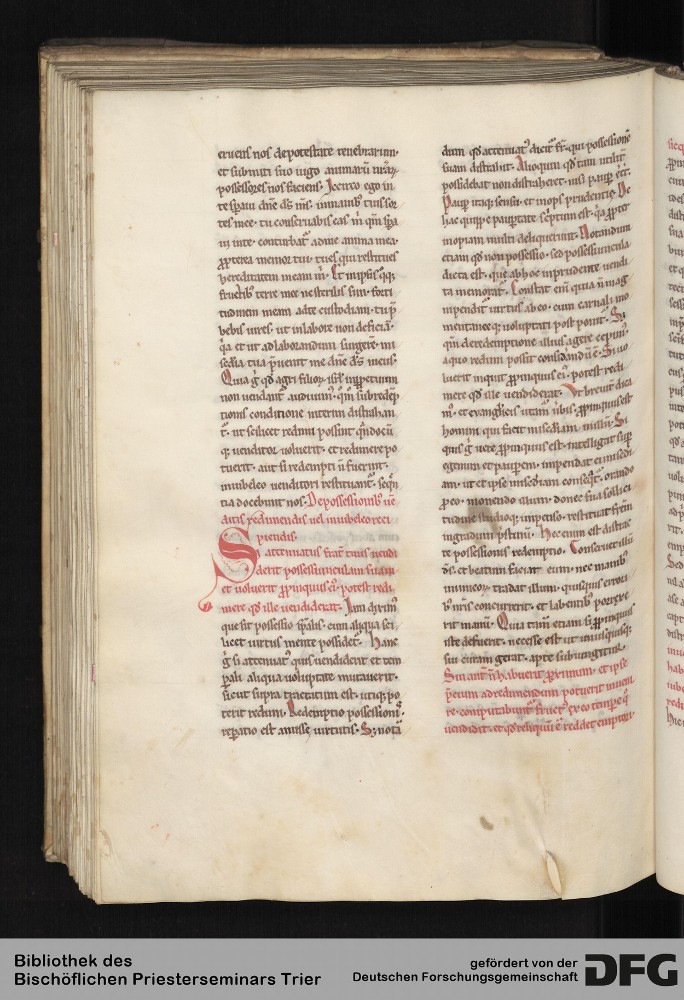 eruens nos de potestate tenebrarum·
et submitti suo iugo animarū nr̄ar̄
possessores nos faciens· Iccirco ego in
te speraui dn̄e ds̄ ms̄· in manib; tuis sor
tes mee· tu conseruabis eas m̄ qm̄ sp̄c̄
in me· conturbat᷒ ad me anima mea
ppterea memor tui· tu es qui restitues
hereditatem meam m̄· Et in ip̄sis q̄q;
fructib; terre mee ne sterilis sim· forti
tudinem meam ad te custodiam· tu p̄
bebis uires· ut in labore non deficiā·
q̄a et ut ad laborandum surgere· mi
sc̄dia tua p̄ueniet me dn̄e ds̄ meus·
Quia g̊ qd̄ agri filior̄ isrl̄ inp̄petuum
non uendant᷒ audiuim᷒· qm̄ sub redēp
tionis conditione interim distrahan
t᷒· ut scilicet redimi possint qn̄ docū
q; uenditor uoluerit· et redimere po
tuerit· aut si redempti n̄ fuerint·
in iubeleo uenditori restituant᷒· seq̄n
tia docebunt nos· De possessionib; uē
ditis redimendis uel in iubeleo reci
piendis·
Si attenuatus frat᷒ tuus uendi
derit possessiunculam suam
et uoluerit ppinquus ei᷒· potest redi
mere qd̄ ille uendiderat· Iam dixim᷒
que sit possessio sp̄alis· cum aliqua sci
licet uirtus mente possidet᷒· Hanc
g̊ si attenuat᷒ quis uendiderit et tem
p̄ali aliqua uoluptate mutauerit·
sicut supra tractatum est· utiq; po
terit redimi· Redemptio possessionis·
rep̄atio est amisse uirtutis· S; nota
dum qd̄ attenuat᷒ dicit᷒ fr̄· qui possessionē
suam distrahit· Alioquin qd̄ tam utilit᷒
possidebat non distraheret· nisi paup̄ eēt·
Paup̄ itaq; sensu· et inops prudentie· De
hac quippe paupertate sc̄ptum est· q̄a ppter
inopiam multi deliquerunt· Notandum
etiam qd̄ non possessio· sed possessiuncula
dicta est· que ab hoc inprudente uendi
ta memorat᷒· Constat eni᷒ quia n̄ mag
ni pendit᷒ uirtus ab eo· cum carnali mo
mentaneeq; uoluptati post ponit᷒· S;
qm̄ de redemptione illius agere cepim᷒·
a quo redimi possit considandū ē· Si uo
luerit inquit ppinquus ei᷒· potest redi
mere qd̄ ille uendiderat· Ut breuit᷒ dica
m᷒· et euangelicis utam᷒ u̇bis· ppinquus est
homini qui facit misc̄diam in illū· Si
quis g̊ uere ppinquus est· intelligat sup̄
egenum et paup̄em· impendat ei misc̄di
am· ut et ip̄se misc̄diam conseq̄t᷒· orando
p eo· monendo illum· donec sua sollici
tudine studioq; impenso· restituat fr̄em
in gradum p̄stinū· Hec enim est distrac
te possessionis redemptio· Conseruet illū
ds̄· et beatum faciat eum· nec in manib;
inimicor̄ tradat illum· quisquis erroci
b; nr̄is concurrerit· et labentib; porrexe
rit manū· Quia tam̄ etiam si ppinquus
iste defuerit· necesse est ut unusquisque
sui curam gerat· apte subiungitur·
Sin aut᷒ n̄ habuerit pximum· et ip̄se
p̄cium ad redimendum potuerit inueni
re· computabunt᷒ fruct᷒ ex eo tempe q̊
uendidit· et qd̄ reliquū ē reddet emptori·
Bibliothek des
Bischöflichen Priesterseminars Trier
gefördert von der
Deutschen Forschungsgemeinschaft
DFG